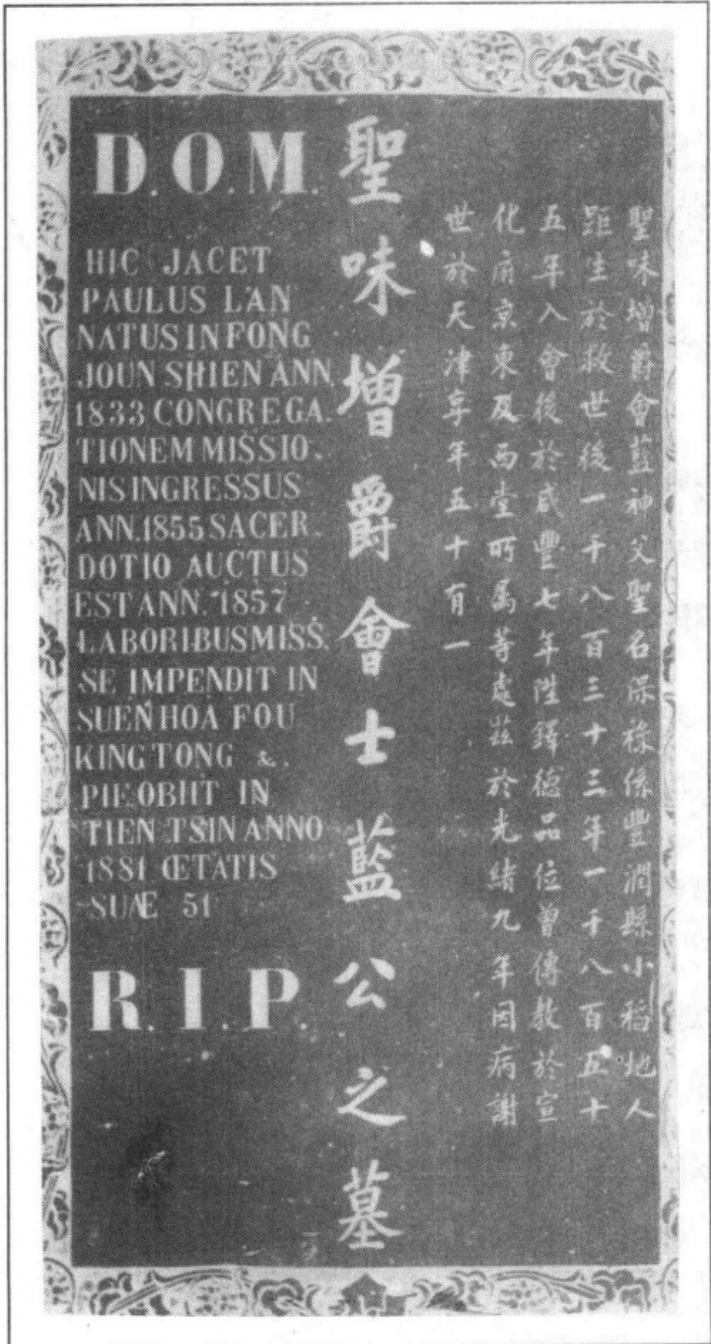 D.O.M.
HIC JACET
PAULUS LAN
NATUS IN FONG
JOUN SHIEN ANN.
1833 CONGREGA.
TIONEM MISSIO.
NIS INGRESSUS
ANN.1855 SACER.
DOTIO AUCTUS
EST ANN. 1857
LABORIBUS MISS.
SE IMPENDIT IN
SUEN HOA FOU
KING TONG &.
PIE OBIIT IN
TIEN TSIN ANNO
1881 ŒTATIS
SUÆ 51
R.I.P.
聖味增爵會士藍公之墓
聖味增爵會藍神父聖名保祿係豐潤縣小稻地人
距生於救世後一千八百三十三年一千八百五十
五年入會後於咸豐七年陞鐸德品位曾傳教於宣
化府京東及西堂所属等處茲於光緒九年因病謝
世於天津享年五十有一